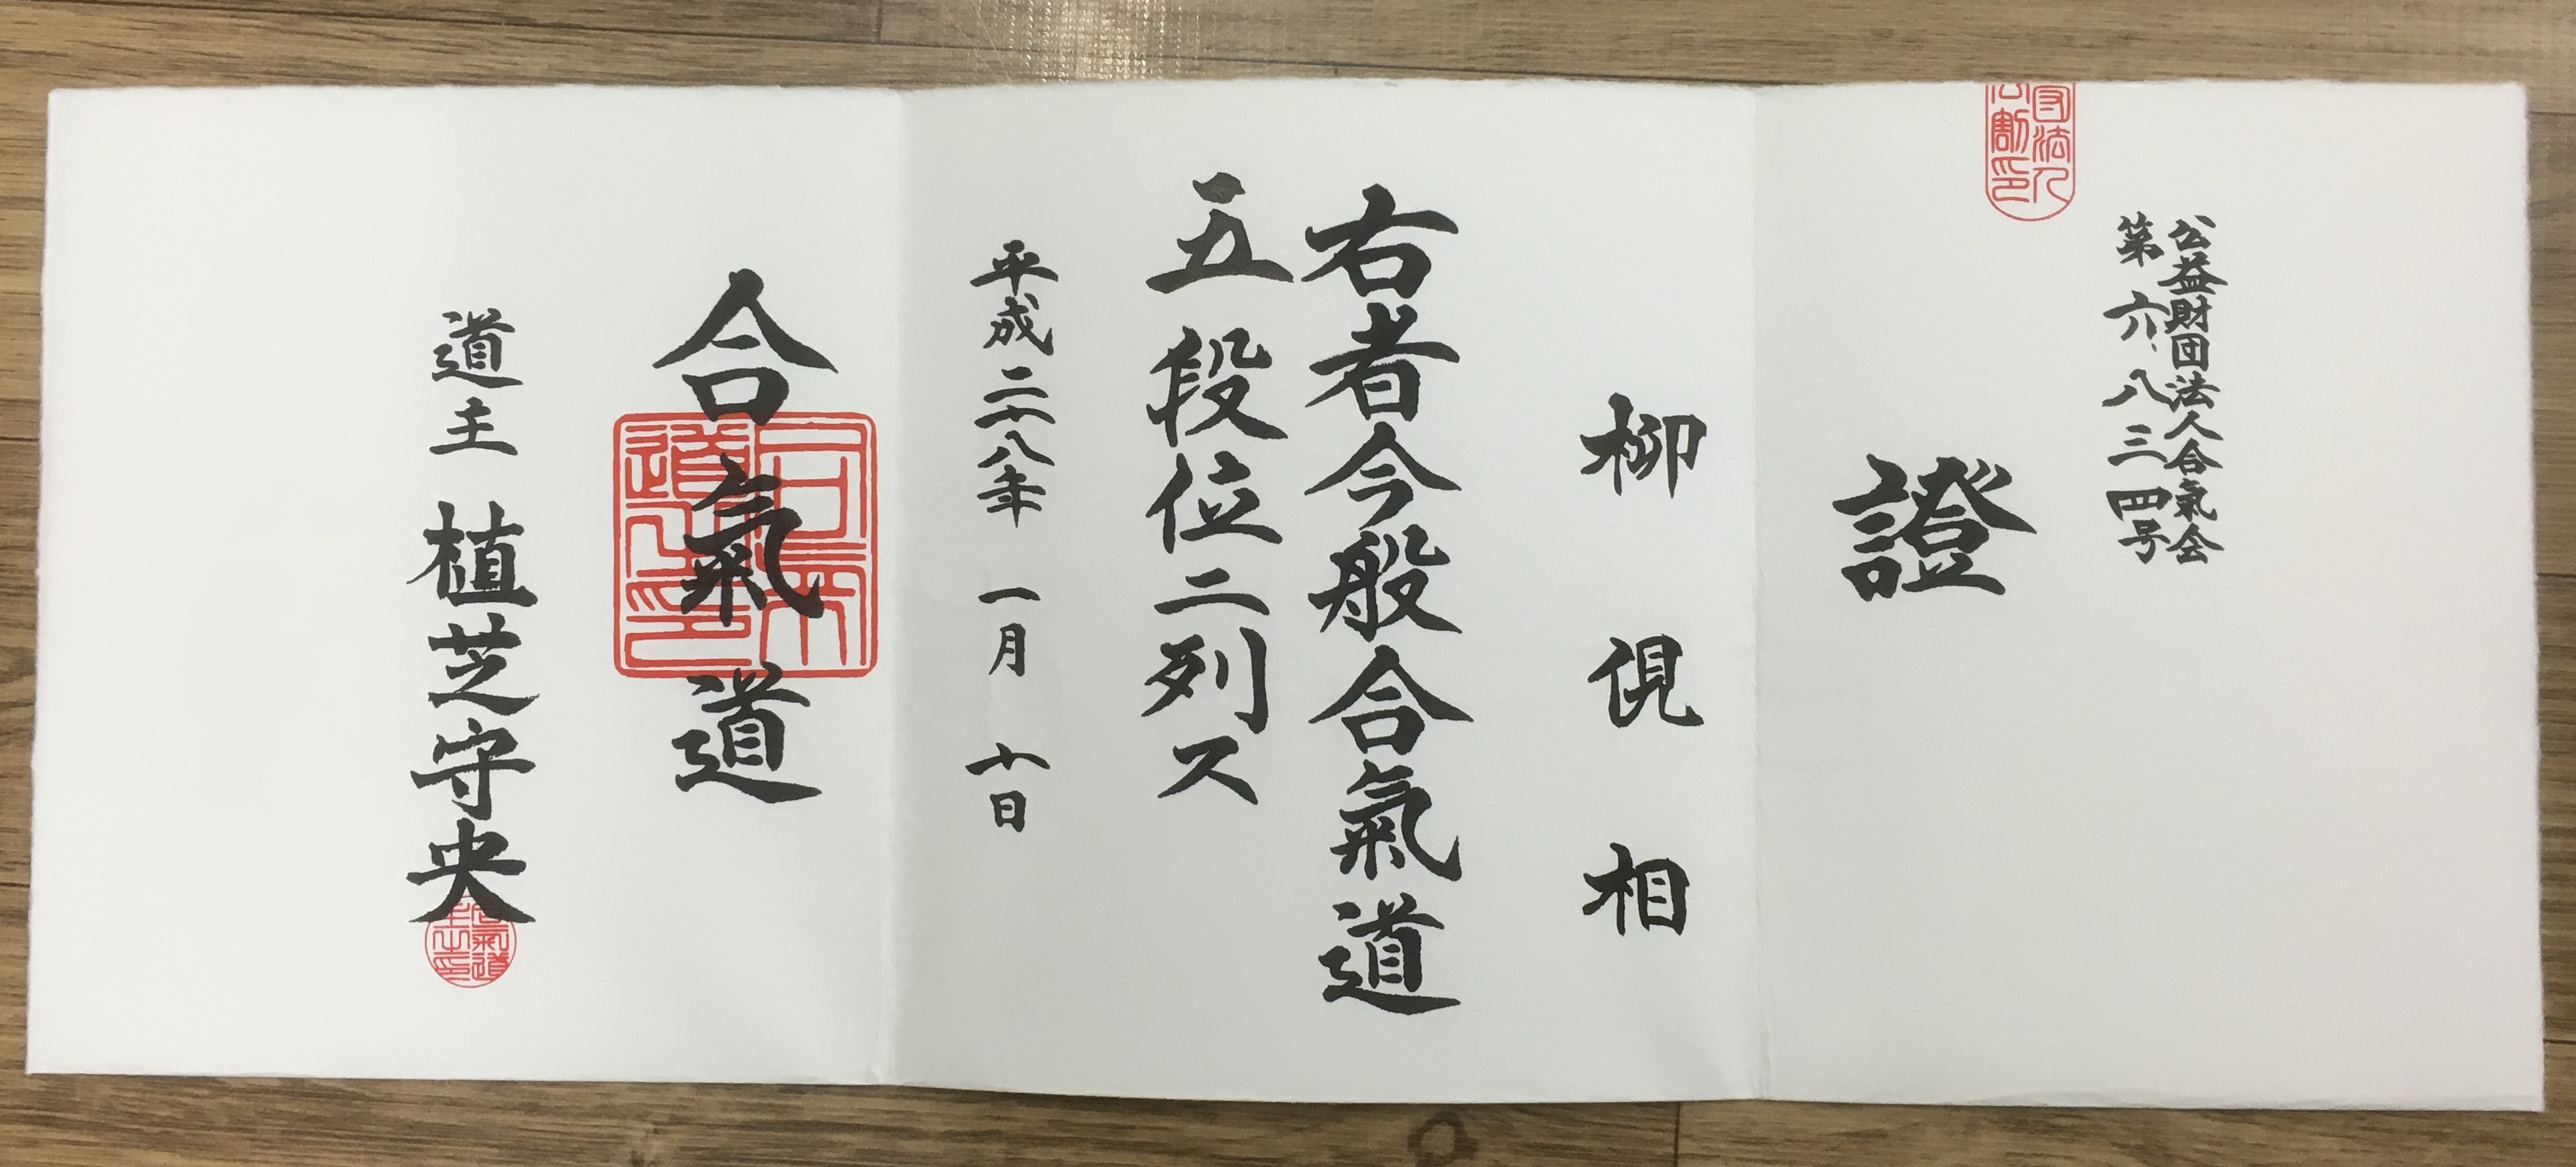 公益財団法人合氣会
第六、八三四号
證
柳俔相
右者今般合氣道
五段位ニ列ス
平成二十八年 一月 十日
合氣道
道主 植芝守央